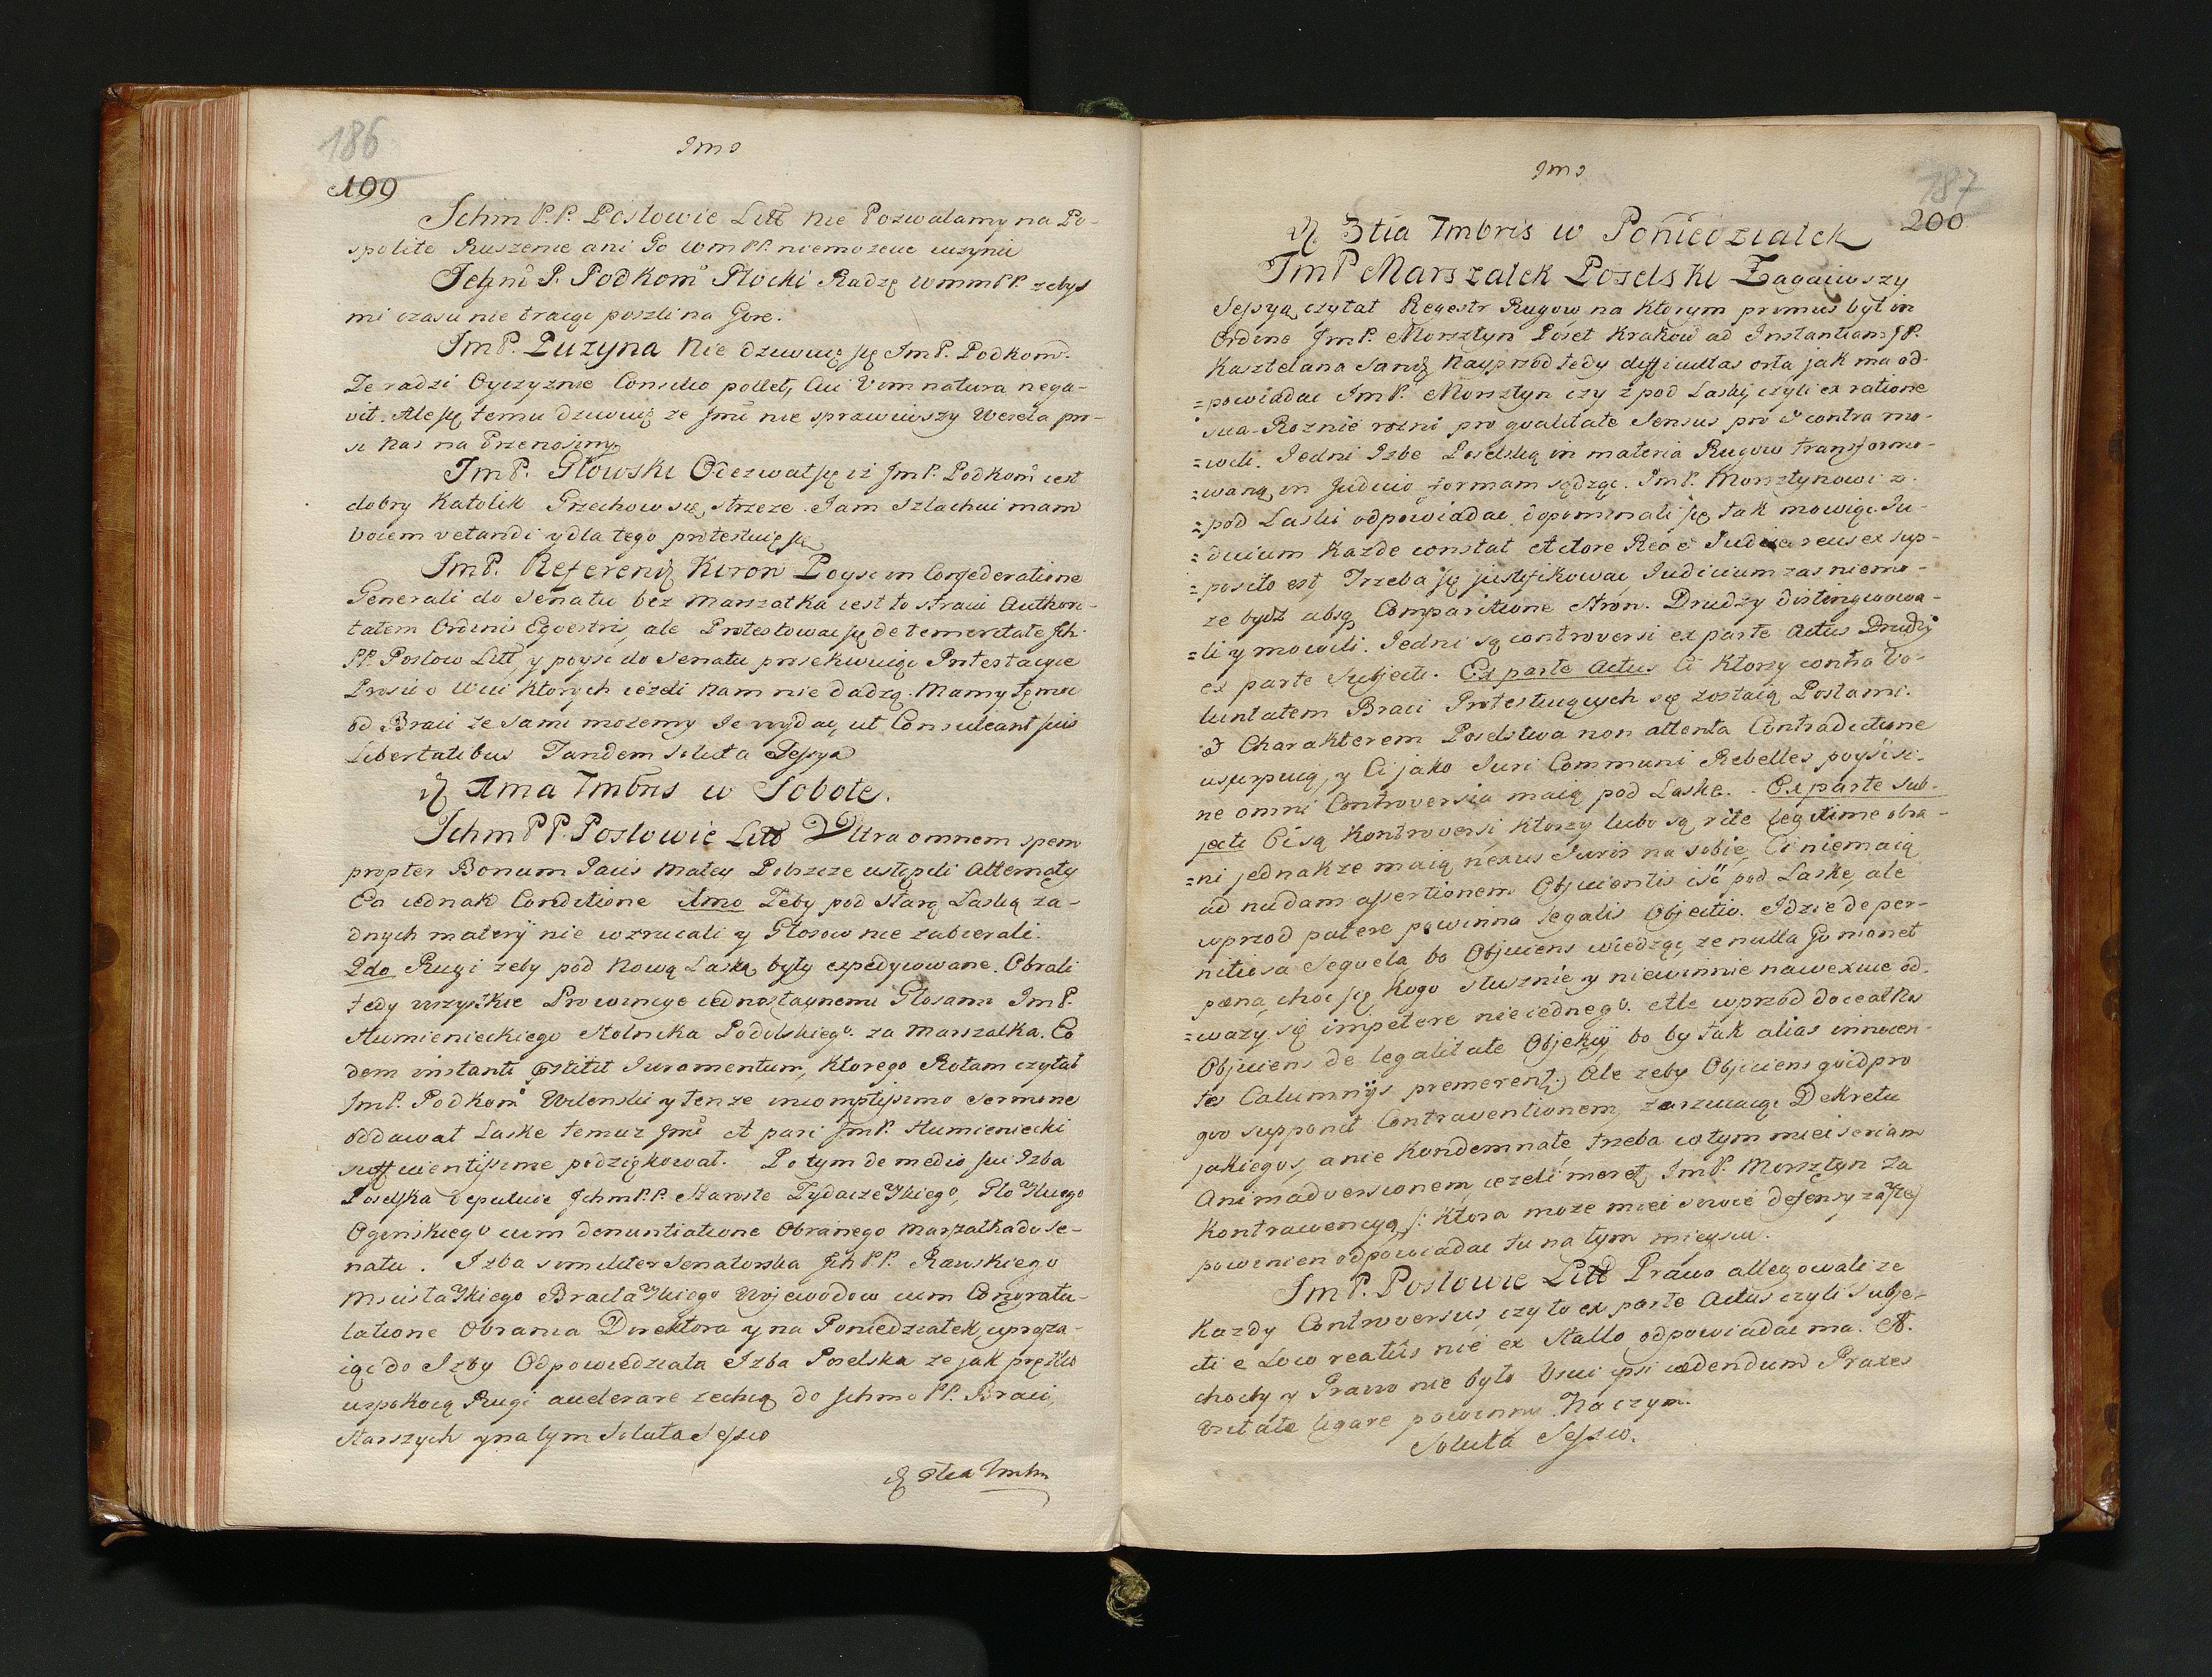 186
Imo
199
Ichm P.P. Posłowie Litt nie Pozwalamy na Po-
spolite Ruszenie ani Go WmPP. niemożecie uczynić
Jegmć P. Podkom Płocki Radzę WmmPP. zebys
mi czasu nie tracąc poszli na Gore.
ImP. Puzyna Nie dziwuię się ImP. Podkom.
Ze radzi Oyczyznie Consilio pollet, Cui Vim natura nega-
vit. Ale się temu dziwuię ze Jmć nie sprawiwszy Wesela pro-
si nas na Przenosiny
ImP. Głowski Odezwał się iż ImP. Podkom iest
dobry Katolik Grzechow się strzeze. Iam Szlachcic mam
vocem vetandi y dla tego protestuię się
ImP. Referend Koron Poyść in Confederatione
Generali do Senatu bez Marszałka iest to stracić Authori-
tatem Ordinis Eqvestris, ale Protestować się de temeritate Ich
PP. Posłow Litt, y poyść do Senatu prosekwuiąc Protestacyie
Prosić o Wici ktorych ieżeli nam nie dadzą. Mamy tę moc
od Braci ze sami możemy Je wydać, ut Consuleant suis
Libertatibus Tandem soluta Sessya
D. 1ma Xmbris w Sobotę.
Ichm PP. Posłowie Litt Ultra omnem spem
propter Bonum Pacis Matey Polszcze ustąpili Alternaty
Ea iednak Conditione 1mo Zeby pod starą Laską za-
dnych materÿi nie wzrucali y Głosow nie zabierali.
2do Rugi zeby pod Nową Laską były expedyiowane. Obrali
tedy wszystkie Prowincye iednostaynemi Głosami ImP.
Humienieckiego Stolnika Podolskiego za Marszałka. Eo
dem instanti prestitit Iuramentum, ktorego Rotam czytał
ImP. Podkom Wilenski y tenze incomptissimo sermone
oddawał Laskę temuz Jmć et pari ImP. Humieniecki
sufficientissime podziękował. Po tym de medio sui Izba
Poselska deputuie Ichm P.P. Starostę Zydaczewskiego,
Oginskiego cum denuntiatione Obranego Marszałka do Se-
natu. Izba similiter Senatorska Ich P.P. Rawskiego
Mscisławskiego Bracławskiego Woiewodow cum Congratu-
latione Obrania Direktora y na Poniedziałek uprasza-
iąc do Izby Odpowiedziała Izba Poselska ze jak prętko
uspokoią Rugi accelerare zechcą do Ichmo PP. Braci,
Starszych y na tym Soluta Sessio
D. 3tia Xmbris
Imo
187
200
D. 3tia Xmbris w Poniedziałek
ImP Marszałek Poselski Zagaiwszy
Sessyą, czytał Regestr Rugow na ktorym primus był in
Ordine ImP. Morsztyn Poseł Krakow ad Instantiam JP.
Kasztelana Sand. Nayprzod tedy difficultas orta jak ma od-
=powiadać ImP. Morsztyn czy z pod Laski, czyli ex ratione
sua. Roznie rozni pro qvalitate Sensus pro et contra mo-
=wili. Jedni Izbę Poselską in materia Rugow transformo-
=waną, in Judicio formam sądząc. ImP. Morsztynowi z
=pod Laski odpowiadać dopominali się tak mowiąc. Ju-
=dicium każde constat Actore Reo et Judice reus ex sup-
=posito est, Trzeba się justifikować, Iudicium zas niemo-
ze bydz absq. Comparitione stron. Drudzy distingwowa-
=li y mowili. Jedni są controversi ex parte Actus Drudzy
ex parte Subjecti. Ex parte Actus Ci ktorzy contra vo-
luntatem Braci Protestuiących się zostaią Posłami.
et Charakterem Poselstwa non attenta Contradictione
usurpuią, y Ci jako Iuri Communi Rebelles poyść si-
ne omni Controversia maią pod Laskę. Ex parte sub-
jecti Ci są Kontroversi, ktorzy lubo są rite legitime obra-
=ni jednakze maią nexus Iuris na sobie, Ci niemaią
ad nudam assertionem Objicientis iść pod Laskę, ale
wprzod patere powinna legalis Objectio. Idzie de per-
nitiosa seqvela bo Objiciens wiedząc, ze nulla Go manet
pœna, choc się kogo słusznie y niewinnie naweźmie od-
=ważÿ się impetere nieiednego. Ale wprzod docealtes
Objiciens de legalitate Objekcÿi, bo by tak alias innocen-
tes Calumnÿs premerent. Ale zeby Objiciens qvid pro
qvo supponit Contraventionem, zarzucaiąc Dekretu
jakiegos, a nie Kondemnatę trzeba w tym mieć seriam
Animadversionem, iezeli meret, ImP. Morsztyn za
Kontrawencyą, /: ktora może mieć swoie defensy zaszłe/
powinien odpowiadac tu na tym mieyscu.
ImP. Posłowie Litt Prawo allegowali ze
każdy Controversus, czy to ex parte Actus czyli Subje-
cti e Loco reatûs nie ex Stallo odpowiadać ma. A.
choćby y Prawo nie było Usui ipsi cedendum Praxes
Uritate ligare powinny. Na czym.
Soluta Sessio.